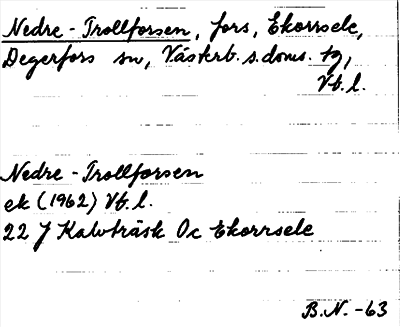 Nedre-Trollforsen, fors, Ekorrsele,
Degerfors sn, Västerb. s. doms. tg,
Vb. l.
Nedre-Trollforsen
ek (1962) Vb. l.
22 J Kalvträsk Oc Ekorrsele
B.N. -63